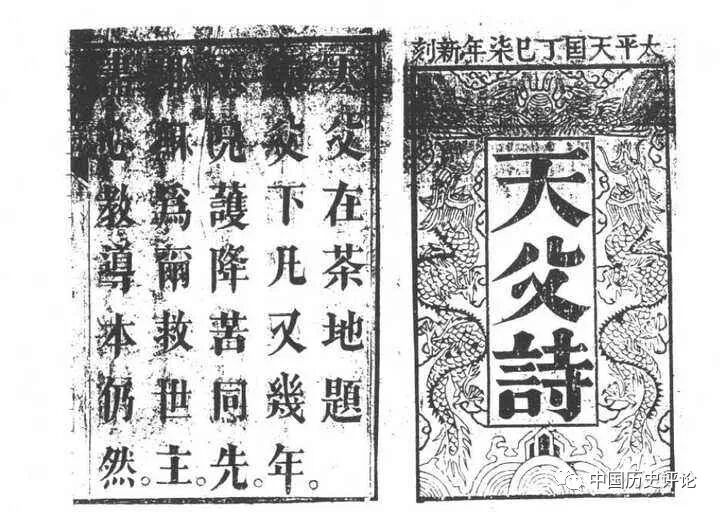 太平天囯丁巳柒年新刻
天父詩
天父在茶地題
天父下凡又幾年。
天兄護降苦同先。
耶穌爲爾救世主。
盡心教導本仍然。
中国历史评论